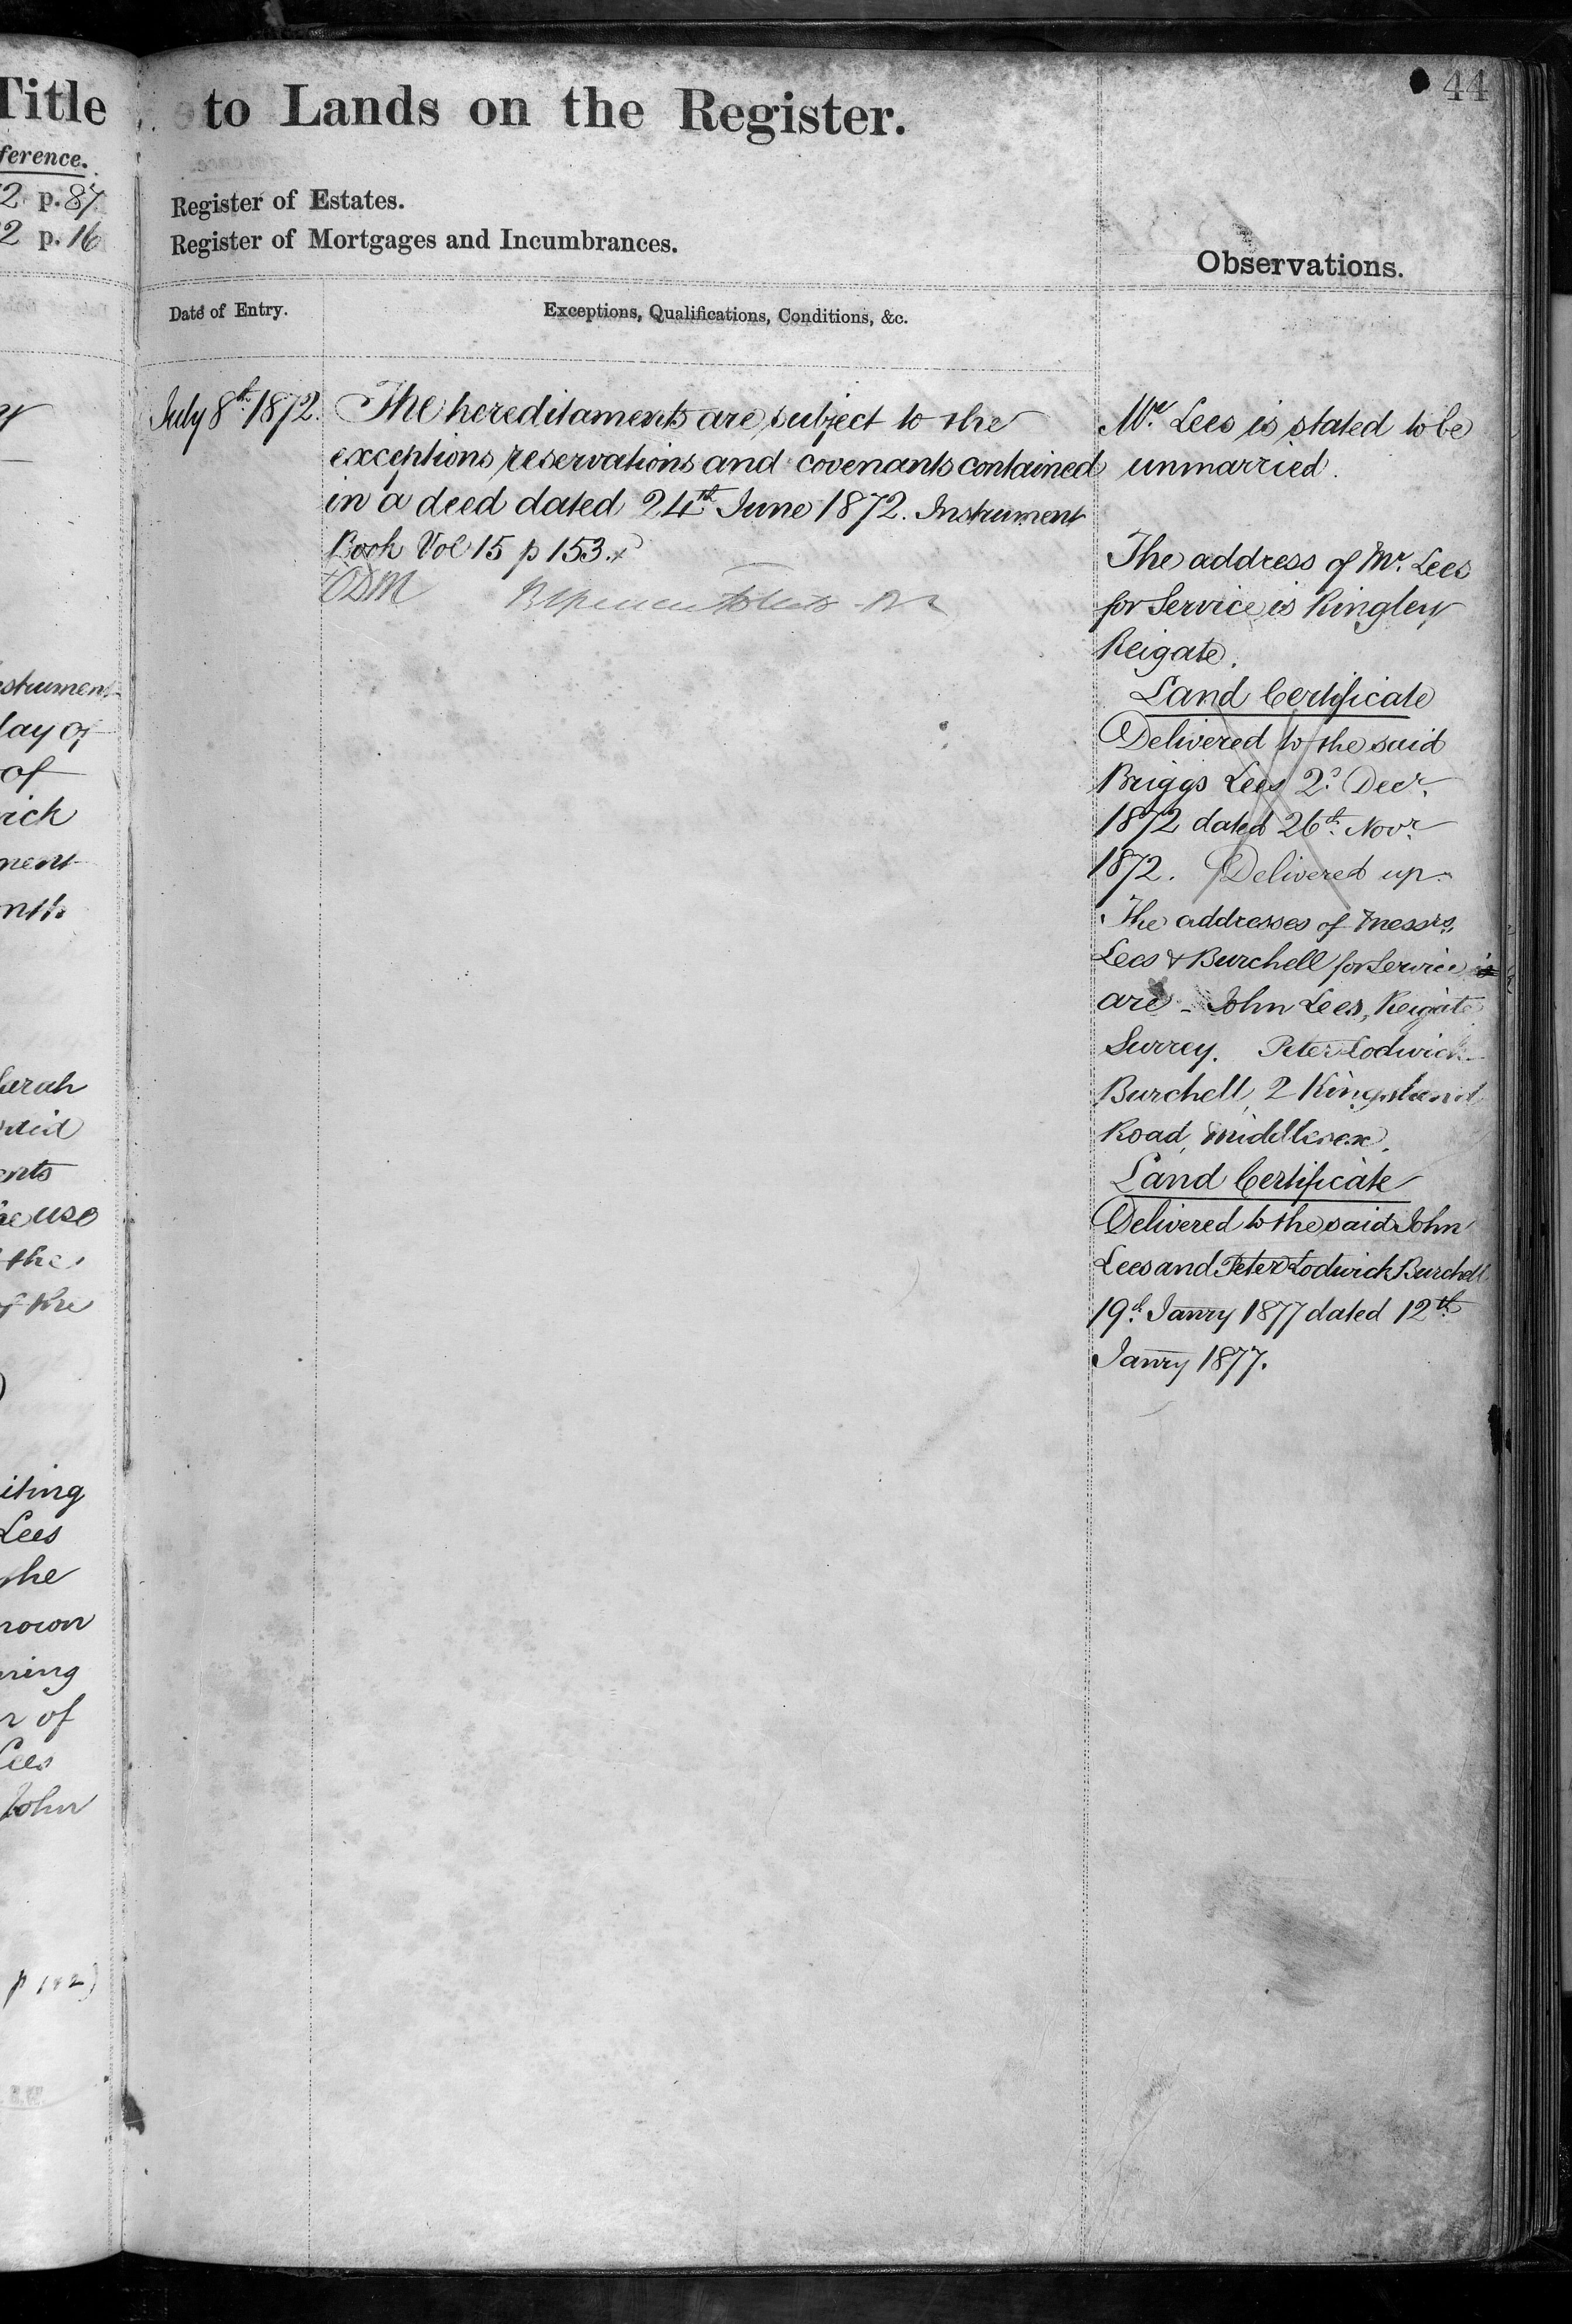 Title
ference.
2 p. 87
2 p. 16
strument
day of
of
rick
ment
nth
Sarah
said
ents
he use
the
of the
iting
Lees
the
nown
ring
r of
Lees
John
to Lands on the Register.
44
Register of Estates.
Register of Mortgages and Incumbrances.
Observations.
Date of Entry.
Exceptions, Qualifications, Conditions, &c.
July 8th 1872.
The hereditaments are subject to the
exceptions reservations and covenants contained
in a deed dated 24th June 1872. Instrument
Book Vol 15 p 153. x
Mr. Lees is stated to be
unmarried.
The address of Mr. Lees
for Service is Ringley
Reigate.
Land Certificate
Delivered to the said
Briggs Lees 2d. Decr.
1872 dated 26th. Novr.
1872. Delivered up.
The addresses of Messrs.
Lees & Burchell for Service is
are - John Lees, Reigate
Surrey. Peter Lodwick
Burchell, 2 Kingsland
Road, Middlesex.
Land Certificate
Delivered to the said John
Lees and Peter Lodwick Burchell
19th. Janry 1877 dated 12th.
Janry 1877.